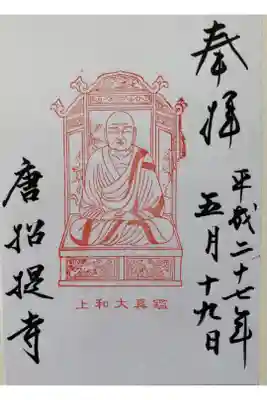 奉拝
平成二十七年
五月十九日
上和大真鑑
唐招提寺